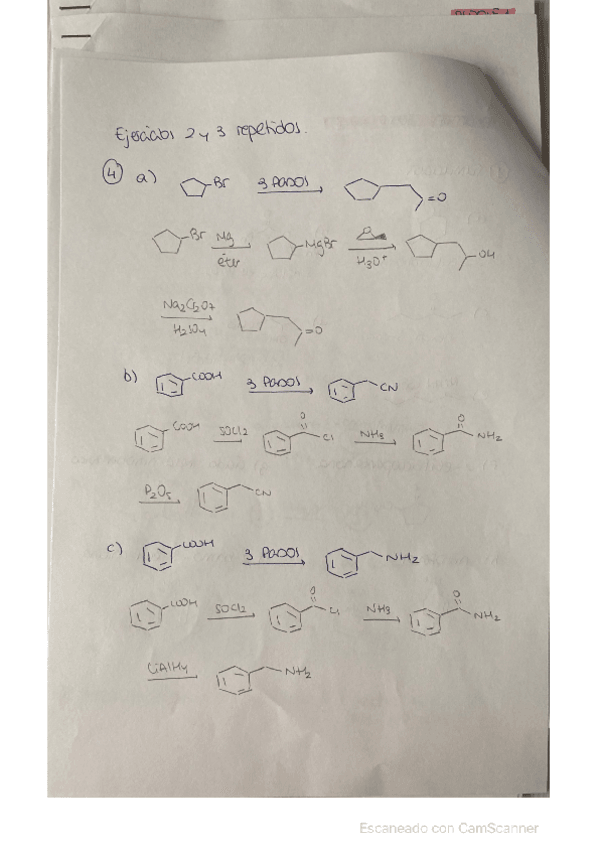 Ejercicios 2 y 3 repetidos.
4 a) Br 3 PASOS =O
Br Mg éter MgBr H3O+ OH
Na2Cr2O7 H2SO4 =O
b) COOH 3 PASOS CN
COOH SOCl2 O Cl NH3 O NH2
P2O5 CN
c) COOH 3 PASOS NH2
COOH SOCl2 O Cl NH3 O NH2
LiAlH4 NH2
Escaneado con CamScanner